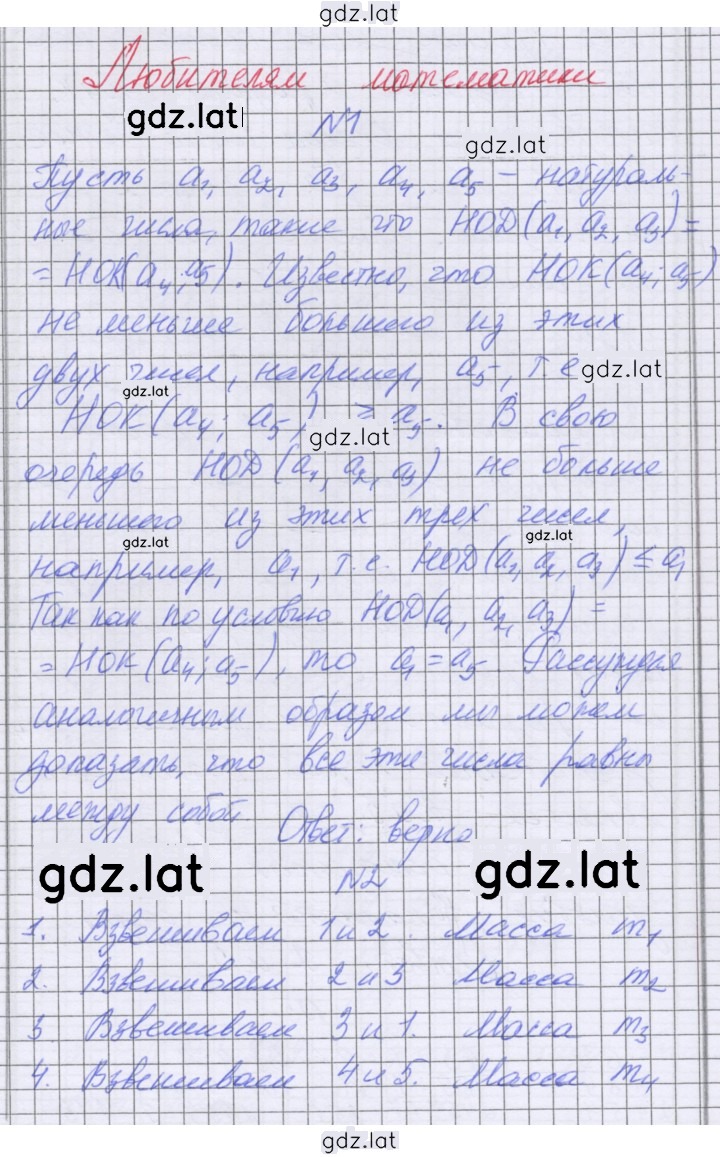 gdz.lat
Любителям математики
gdz.lat
№1
gdz.lat
Пусть a1, a2, a3, a4, a5 – натураль-
ные числа, такие что НОD(a1, a2, a3) =
= НОК(a4; a5). Известно, что НОК(a4; a5)
не меньше большего из этих
двух чисел, например, a5, т.е
gdz.lat
gdz.lat
НОК(a4; a5) ≥ a5. В свою
gdz.lat
очередь НОD(a1, a2, a3) не больше
меньшего из этих трех чисел,
gdz.lat
gdz.lat
например, a1, т.е. НОD(a1, a2, a3) ≤ a1
Так как по условию НОD(a1, a2, a3) =
= НОК(a4; a5), то a1 = a5 Рассуждая
аналогичным образом мы можем
доказать, что все эти числа равны
между собой
Ответ: верно
gdz.lat
gdz.lat
№2
1. Взвешиваем 1 и 2. Масса m1
2. Взвешиваем 2 и 3 Масса m2
3 Взвешиваем 3 и 1. Масса m3
4. Взвешиваем 4 и 5. Масса m4
gdz.lat